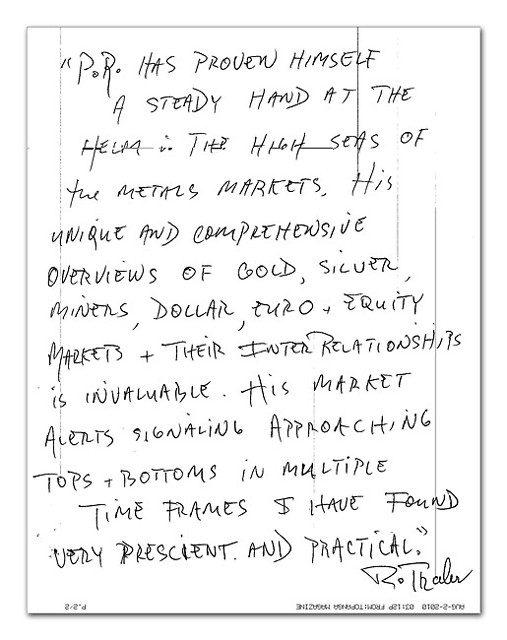 "P.R. HAS PROVEN HIMSELF
A STEADY HAND AT THE
HELM in THE HIGH SEAS OF
the METALS MARKETS. His
UNIQUE AND COMPREHENSIVE
OVERVIEWS OF GOLD, SILVER,
MINERS, DOLLAR, EURO + EQUITY
MARKETS + THEIR INTERRELATIONSHIPS
is INVALUABLE. His MARKET
ALERTS SIGNALING APPROACHING
TOPS + BOTTOMS IN MULTIPLE
TIME FRAMES I HAVE FOUND
VERY PRESCIENT AND PRACTICAL."
Ro Thaler
AUG-2-2010 03:12P FROM:TOPANGA MAGAZINE
P.2/2